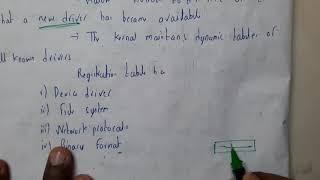 that a new driver has become available
→ The kernel maintains dynamic tables of
all known drivers
Registration table
i) Device driver
ii) File system
iii) Network protocols
iv) Binary format